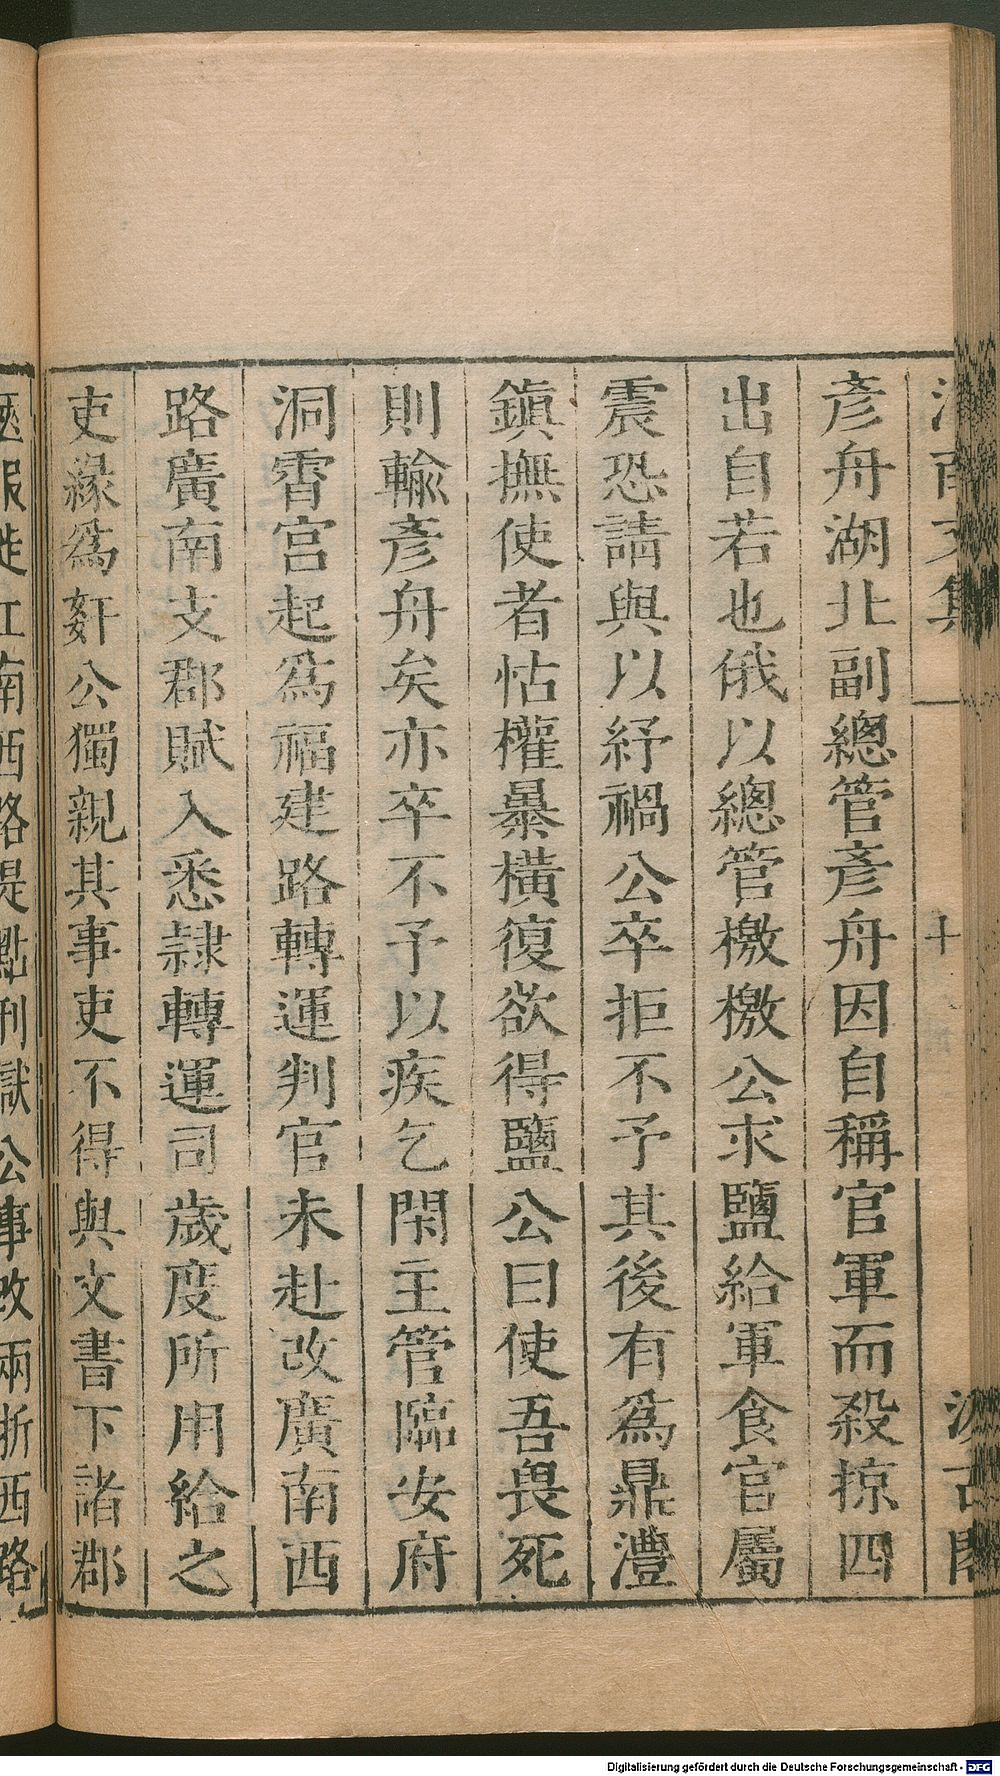 文集
十
彥舟湖北副總管彥舟因自稱官軍而殺掠四
出自若也俄以總管檄檄公求鹽給軍食官屬
震恐請與以紓禍公卒拒不予其後有爲鼎澧
鎮撫使者怙權暴橫復欲得鹽公曰使吾畏死
則輸彥舟矣亦卒不予以疾乞閑主管臨安府
洞霄宮起爲福建路轉運判官未赴改廣南西
路廣南支郡賦入悉隷轉運司歲度所用給之
吏緣爲奸公獨親其事吏不得與文書下諸郡
江南西路提點刑獄公事改兩浙西路
Digitalisierung gefördert durch die Deutsche Forschungsgemeinschaft - DFG